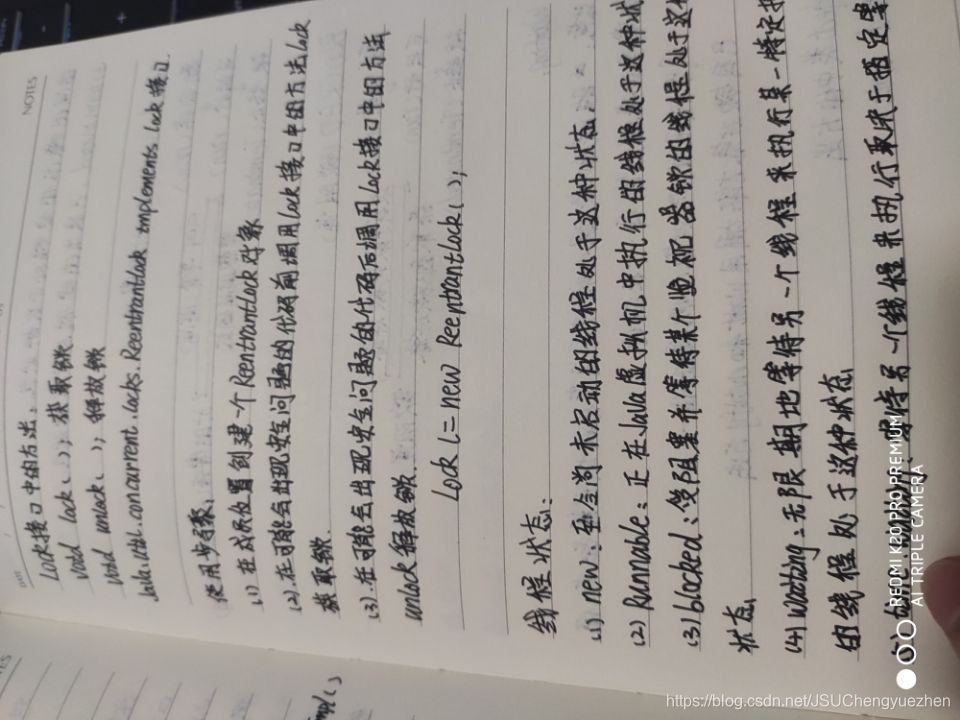 NOTES
DATE
Lock接口中的方法:
void lock(); 获取锁
void unlock(); 释放锁
java.util.concurrent.locks.ReentrantLock implements Lock接口
使用步骤:
(1)在成员位置创建一个ReentrantLock对象
(2).在可能会出现安全问题的代码前调用Lock接口中的方法lock
获取锁.
(3).在可能会出现安全问题的代码后调用Lock接口中的方法
unlock释放锁.
Lock l = new ReeptrantLock();
线程状态:
(1) new: 至今尚未启动的线程处于这种状态.
(2) Runnable: 正在Java虚拟机中执行的线程处于这种状
(3) blocked: 受阻塞并等待某个监视器锁的线程处于这种
状态
(4) Waiting: 无限期地等待另一个线程来执行某一特定操
的线程处于这种状态
(5) 等待另一个线程来执行取决于指定等
REDMI K20 PRO PREMIUM
AI TRIPLE CAMERA
https://blog.csdn.net/JSUChengyuezhen